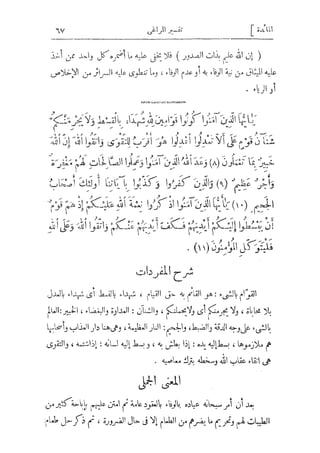 المائدة ] تفسير المراغى ٦٧
( إن الله عليم بذات الصدور ) فلا يخفى عليه ما أضمره كل واحد ممن أخذ
عليه الميثاق من نية الوفاء به أو عدم الوفاء ، وما تنطوى عليه السرائر من الإخلاص
أو الرياء .
يٰأَيُّهَا الَّذِينَ آمَنُوا كُونُوا قَوَّامِينَ لِلّٰهِ شُهَدَاءَ بِالْقِسْطِ وَلَا يَجْرِمَنَّكُمْ
شَنَآنُ قَوْمٍ عَلَى أَلَّا تَعْدِلُوا اعْدِلُوا هُوَ أَقْرَبُ لِلتَّقْوَى وَاتَّقُوا اللهَ إِنَّ اللهَ
خَبِيرٌ بِمَا تَعْمَلُونَ (٨) وَعَدَ اللهُ الَّذِينَ آمَنُوا وَعَمِلُوا الصَّالِحَاتِ لَهُمْ مَغْفِرَةٌ
وَأَجْرٌ عَظِيمٌ (٩) وَالَّذِينَ كَفَرُوا وَكَذَّبُوا بِآيَاتِنَا أُولٰئِكَ أَصْحَابُ
الْجَحِيمِ (١٠) يٰأَيُّهَا الَّذِينَ آمَنُوا اذْكُرُوا نِعْمَةَ اللهِ عَلَيْكُمْ إِذْ هَمَّ قَوْمٌ
أَنْ يَبْسُطُوا إِلَيْكُمْ أَيْدِيَهُمْ فَكَفَّ أَيْدِيَهُمْ عَنْكُمْ وَاتَّقُوا اللهَ وَعَلَى اللهِ
فَلْيَتَوَكَّلِ الْمُؤْمِنُونَ (١١) .
شرح المفردات
القوّام بالشىء : هو القائم به حق القيام ، شهداء بالقسط أى شهداء بالعدل
بلا محاباة ، ولا يجرمنكم أى ولا يحملنكم ، والشنآن : العداوة والبغضاء ، الخبير : العالم
بالشىء على وجه الدقة والضبط ، والجحيم : النار العظيمة ، وهى هنا دار العذاب وأصحابها
هم ملازموها ، بسط إليه يده : إذا بطش به ، وبسط إليه لسانه : إذا شتمه ، والتقوى
هى اتقاء عقاب الله وسخطه بترك معاصيه .
المعنى الجملى
بعد أن أمر سبحانه عباده بالوفاء بالعقود عامة ثم امتن عليهم بإباحة كثير من
الطيبات لهم وتحريم ما يضرهم من الطعام إلا فى حال الضرورة ، ثم ذكر حل طعام